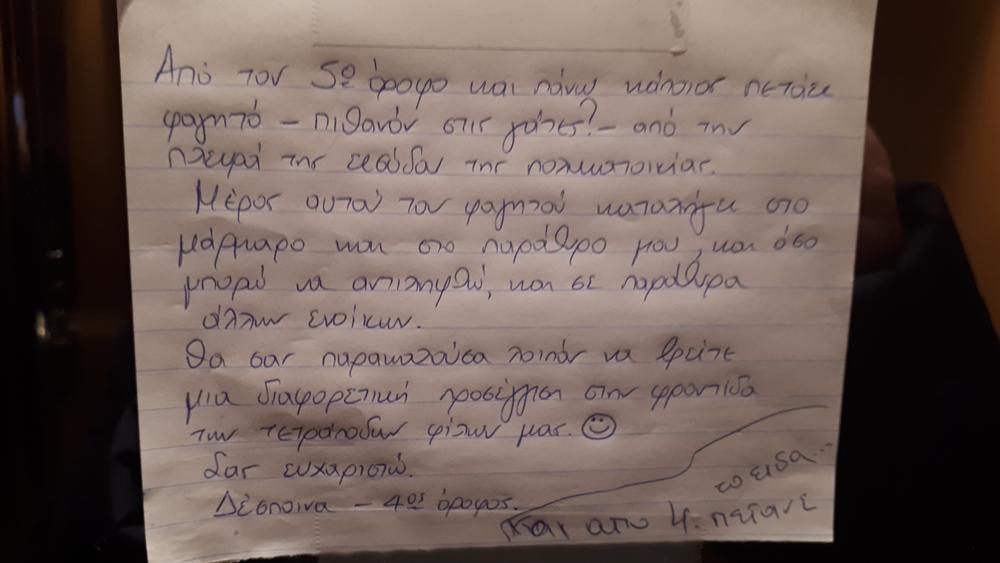 Από τον 5º όροφο και πάνω κάποιος πετάει
φαγητό – πιθανόν στις γάτες? – από την
πλευρά της εισόδου της πολυκατοικίας.
Μέρος αυτού του φαγητού καταλήγει στο
μάρμαρο και στο παράθυρο μου, και όσο
μπορώ να αντιληφθώ, και σε παράθυρα
άλλων ενοίκων.
Θα σας παρακαλούσα λοιπόν να βρείτε
μια διαφορετική προσέγγιση στην φροντίδα
των τετράποδων φίλων μας. ☺
Σας ευχαριστώ.
Δέσποινα – 4ος όροφος.
και απο 4. πετανε
το ειδα...